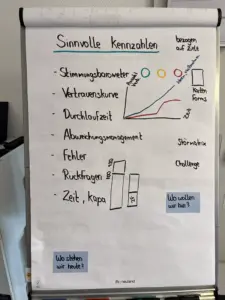 Sinnvolle Kennzahlen
bezogen
auf Ziele
- Stimmungsbarometer
- Vertrauenskurve
Karten
Forms
- Durchlaufzeit
- Abweichungsmanagement
- Fehler
Challenge
- Rückfragen
- Zeit, Kapa
Wo wollen
wir hin?
Wo stehen
wir heute?